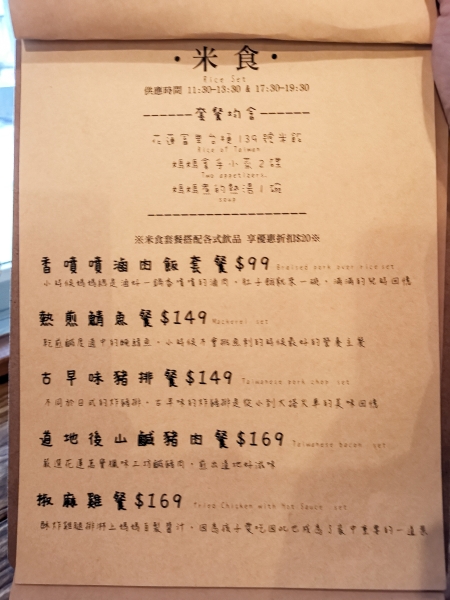 ·米食·
Rice Set
供應時間 11:30-13:30 & 17:30-19:30
------套餐均含------
花蓮富里台梗139號米飯
Rice of Taiwan
媽媽拿手小菜2碟
Two appetizers.
媽媽煮的熱湯1碗
soup
※米食套餐搭配各式飲品 享優惠折扣$20※
香噴噴滷肉飯套餐$99 Braised pork over rice set
小時候媽媽總是滷好一鍋香噴噴的滷肉，肚子餓就來一碗，滿滿的兒時回憶
熱煎鯖魚餐$149 Mackerel set
乾煎鹹度適中的挪鯖魚，小時候不會挑魚刺的時候最好的營養主餐
古早味豬排餐$149 Taiwanese pork chop set
不同於日式的炸豬排，古早味的炸豬排是從小到大搭火車的美味回憶
道地後山鹹豬肉餐$169 Taiwanese bacon set
嚴選花蓮 風味工坊鹹豬肉，煎出道地好滋味
椒麻雞餐$169 Fried Chicken with Hot Sauce set
酥炸雞腿排拌上媽媽自製醬汁，因為孩子愛吃因此也成為了家中重要的一道菜